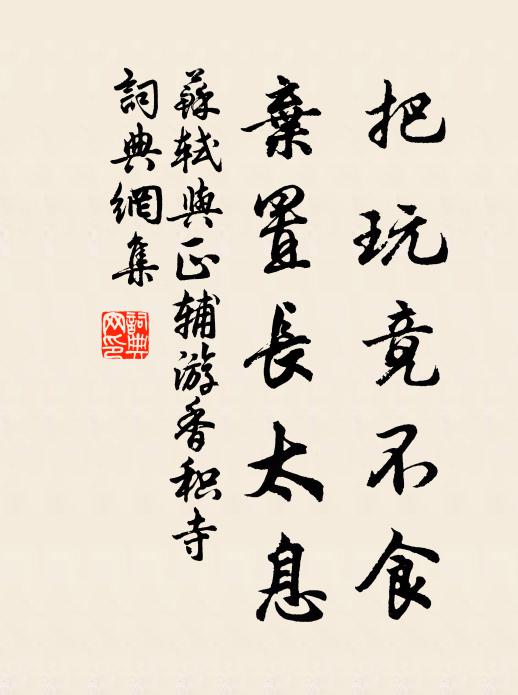 把玩竟不食
棄置長太息
蘇軾與正輔游香积寺
詞典網集
詞典網印